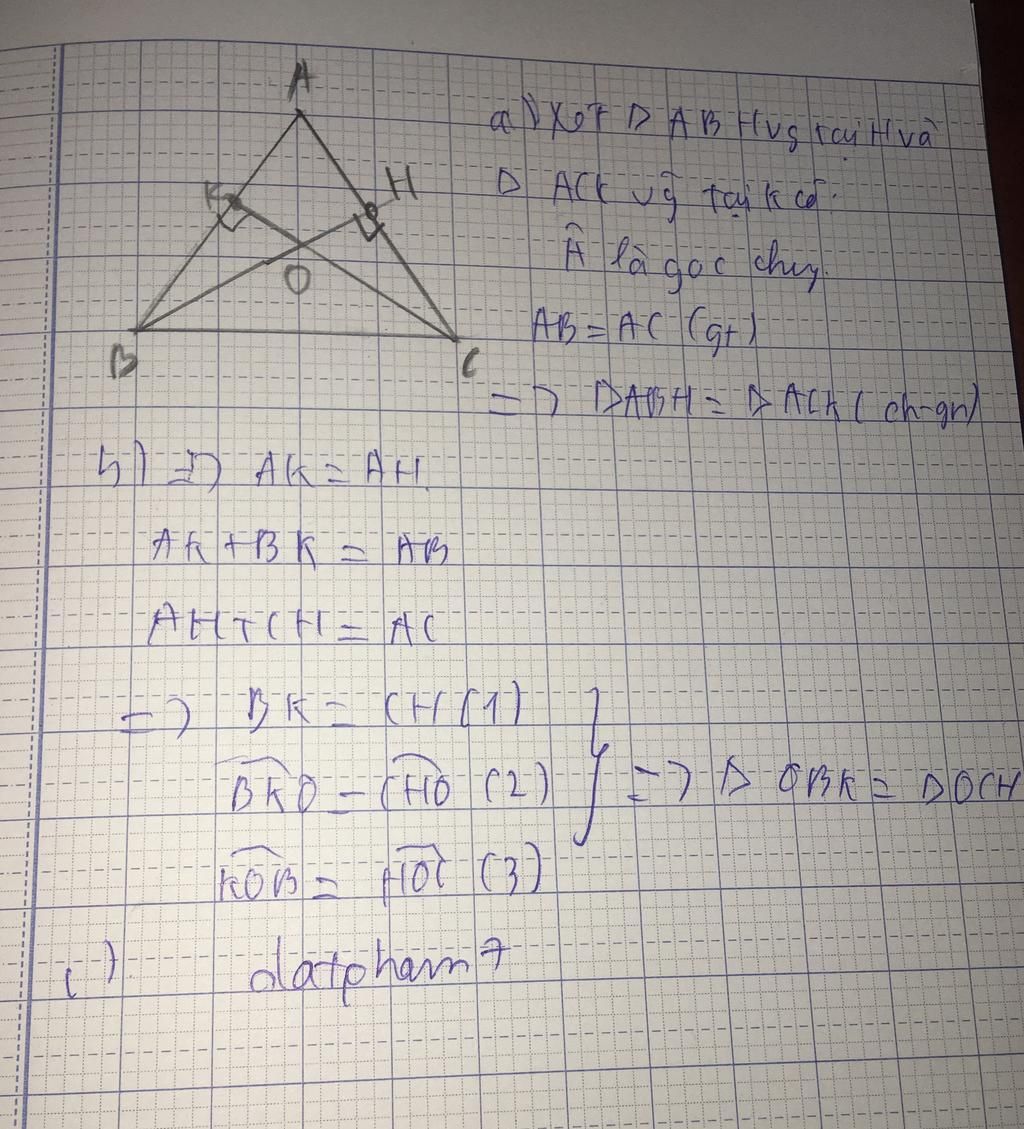 A
K
H
O
B
C
a) Xét Δ ABH vg tại H và
Δ ACK vg tại K có:
Â là góc chug
AB = AC (gt)
=> ΔABH = Δ ACK (ch-gn)
b) => AK = AH
AK + BK = AB
AH + CH = AC
=> BK = CH (1)
BKO = CHO (2) => Δ OBK = ΔOCH
KOB = HOC (3)
c) datpham7